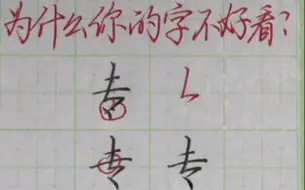 为什么你的字不好看?
专
专 专